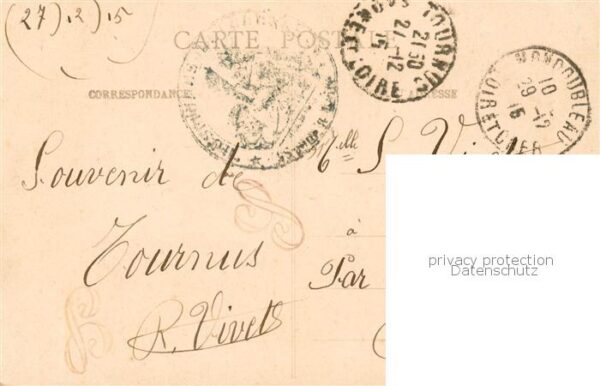 (27) 12) 15)
CARTE POSTALE
CORRESPONDANCE
TOURNUS
SAONE ET LOIRE
21 30
27 12
15
MONDOUBLEAU
LOIR ET CHER
10
29 12
15
Souvenir de
Tournus
R. Vivet
Melle S. Vi
à
Par
privacy protection
Datenschutz